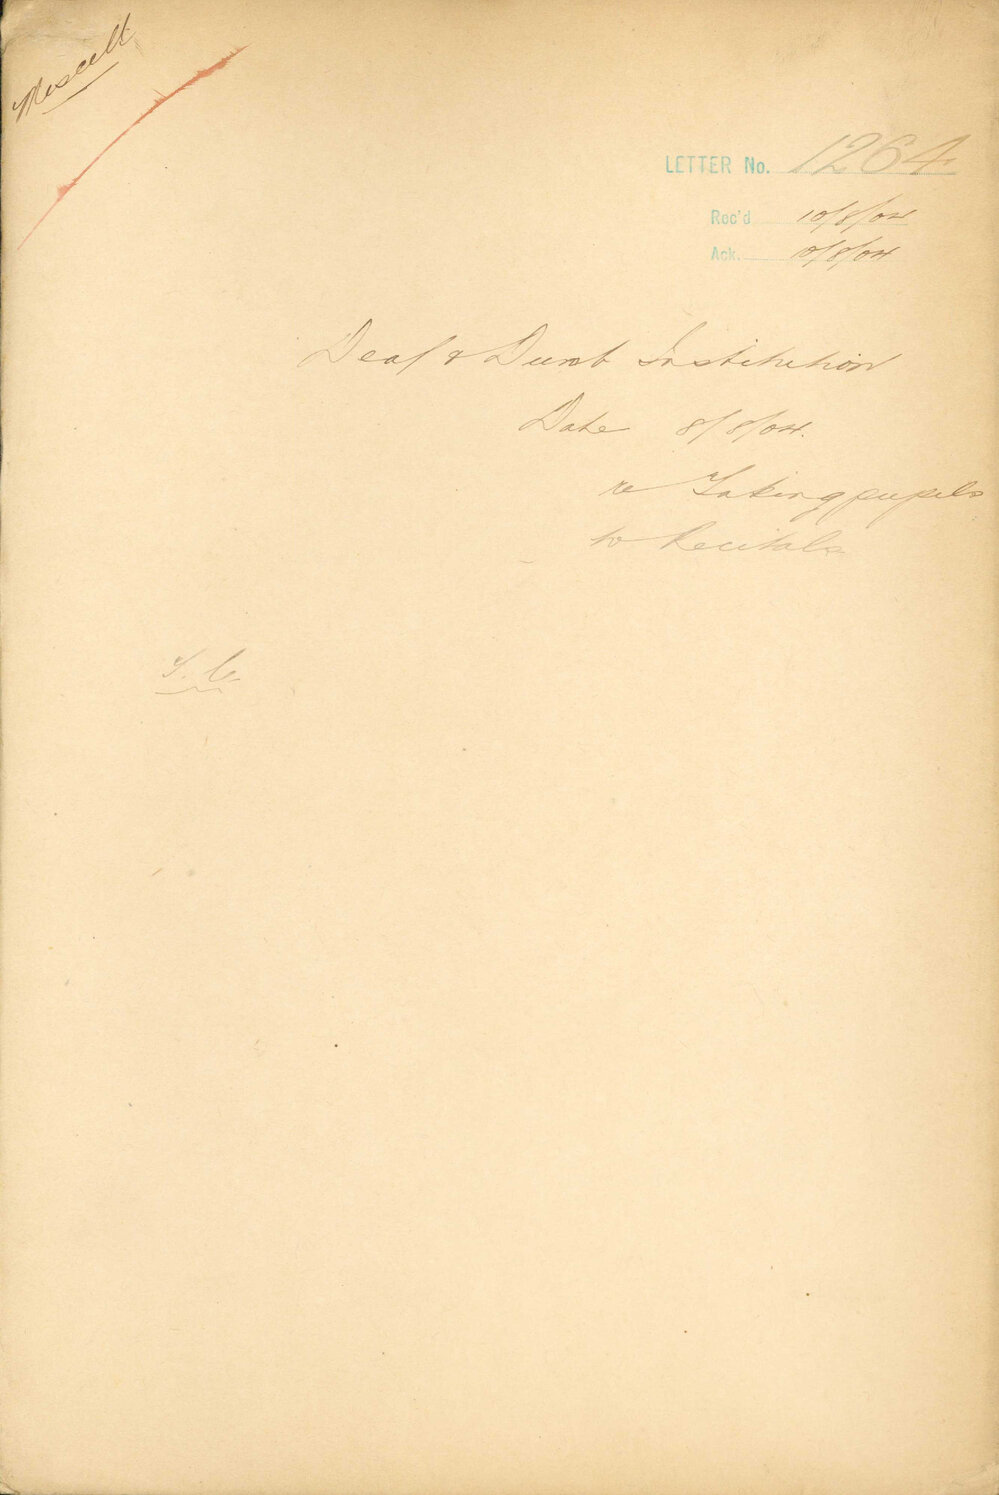 Miscell
LETTER No. 1264
Rec'd 10/8/04
Ack. 10/8/04
Deaf & Dumb Institution
Date 8/8/04.
re Taking pupils
to Recitals
T. C.